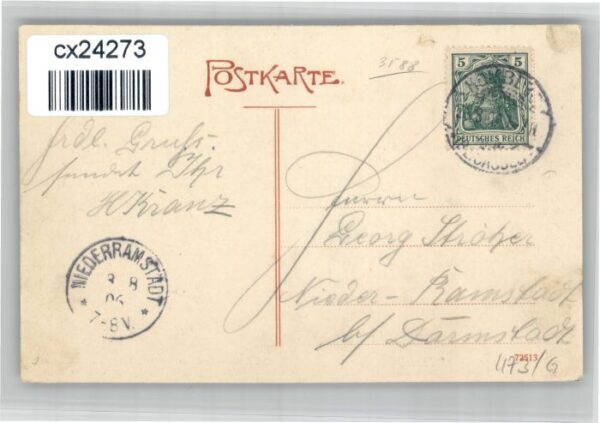 cx24273
POSTKARTE.
3588
5
DEUTSCHES REICH
frdl. Gruß
sendet Ihr
H Kranz
Herrn
Georg Ströher
Nieder-Ramstadt
b/ Darmstadt
NIEDERRAMSTADT
8 8
06
7-8V.
72513
473/G